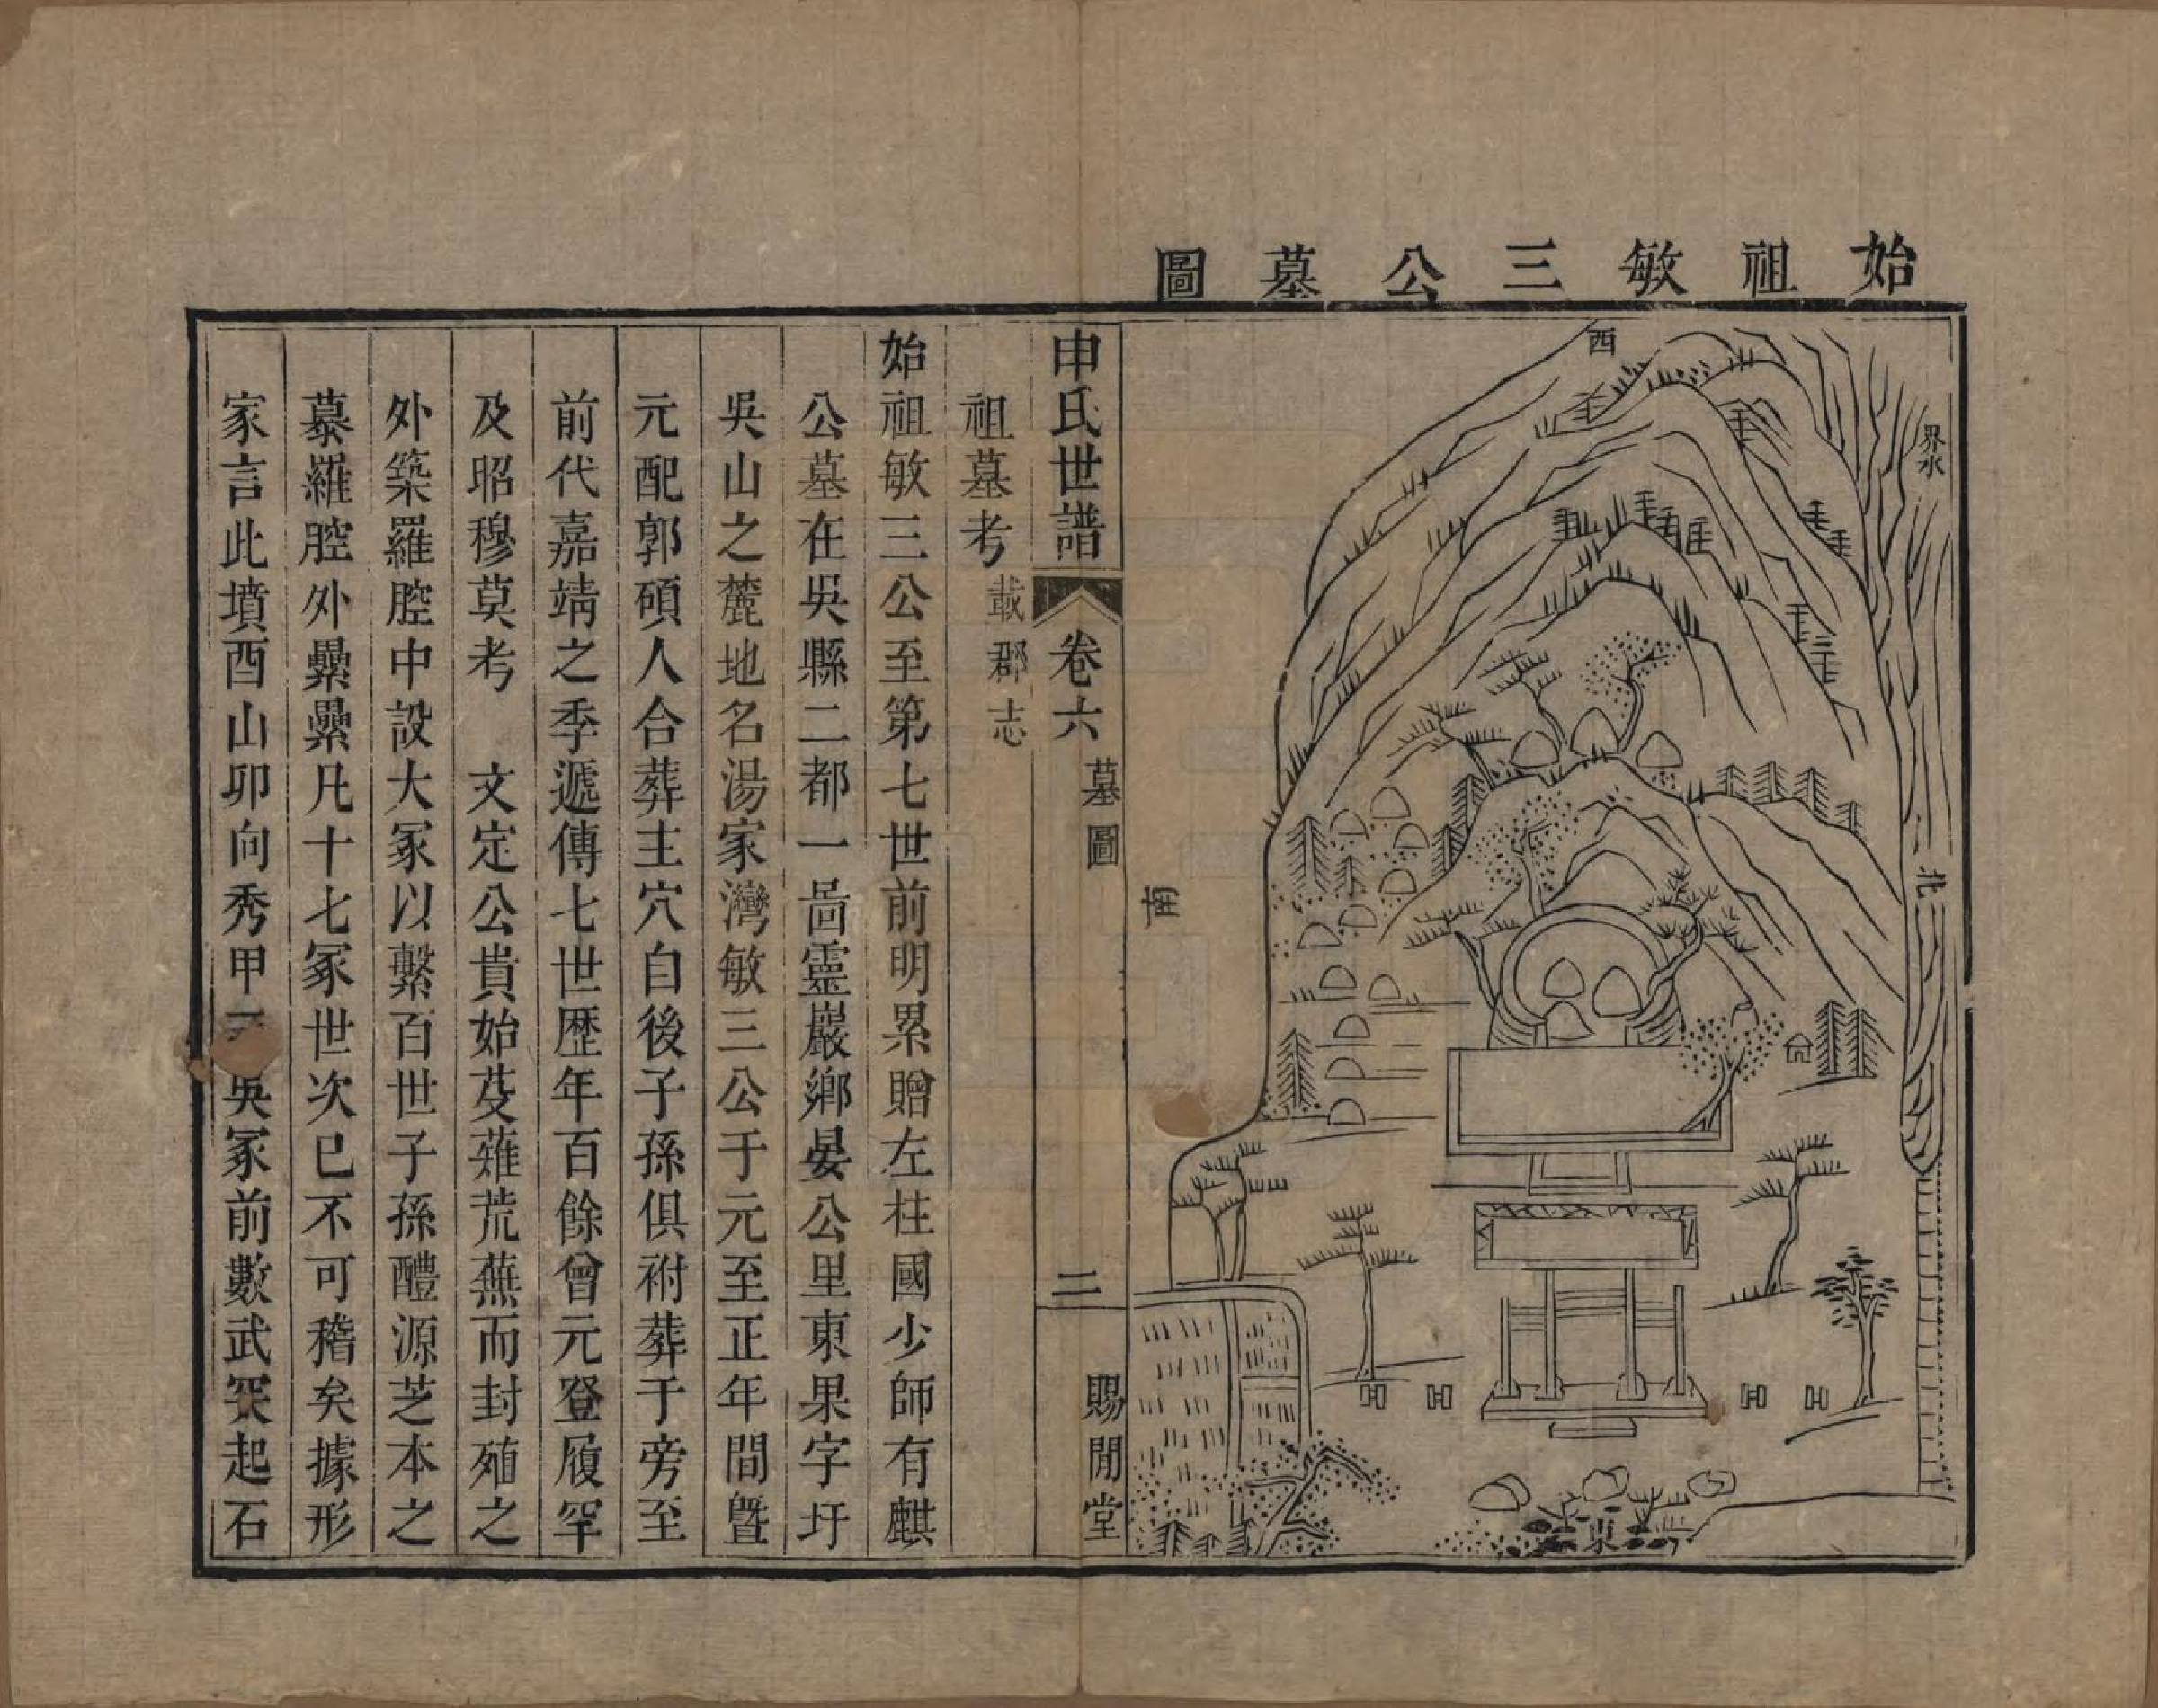 始祖敏三公墓圖
西
界水
北
南
東
申氏世譜 卷六 墓圖 二 賜閒堂
祖墓考 載郡志
始祖敏三公至第七世前明累贈左柱國少師有麒
公墓在吳縣二都一啚靈巖鄉晏公里東果字圩
吳山之麓地名湯家灣敏三公于元至正年間曁
元配郭碩人合葬主穴自後子孫俱祔葬于旁至
前代嘉靖之季遞傳七世歷年百餘曾元登履罕
及昭穆莫考 文定公貴始芟薙荒蕪而封殖之
外築羅腔中設大冢以繫百世子孫醴源芝本之
慕羅腔外纍纍凡十七冢世次已不可稽矣據形
家言此墳酉山卯向秀甲吳冢前數武突起石